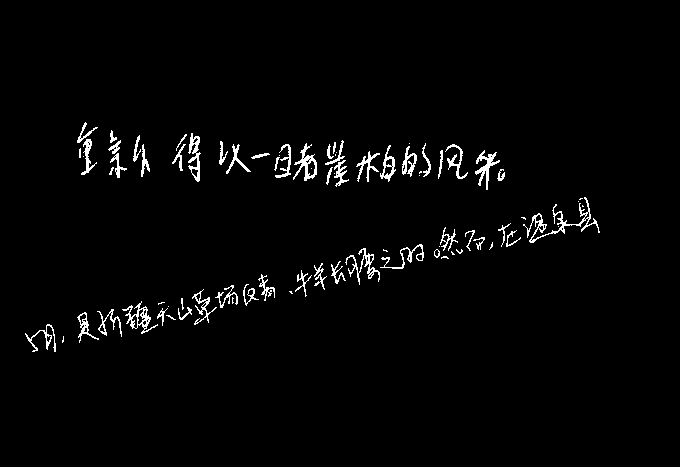 重新得以一睹崖柏的风采。
5月,是新疆天山草场返青、牛羊长膘之时。然而,在温泉县